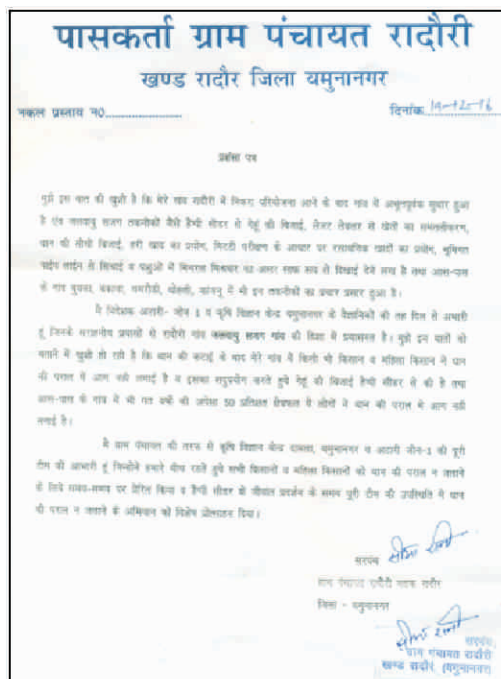 पासकर्ता ग्राम पंचायत रादौरी
खण्ड रादौर जिला यमुनानगर
नकल प्रस्ताव न0.................... दिनांक 19-12-16
प्रशंसा पत्र
मुझे इस बात की खुशी है कि मेरे गांव रादौरी में निकरा परियोजना आने के बाद गांव में अभूतपूर्वक सुधार हुआ
है एंव जलवायु सजग तकनीकों जैसे हैप्पी सीडर से गेहूं की बिजाई, लेजर लेवलर से खेतों का समतलीकरण,
धान की सीधी बिजाई, हरी खाद का प्रयोग, मिटटी परीक्षण के आधार पर रसायनिक खादों का प्रयोग, भूमिगत
पाईप लाईन से सिंचाई व पशुओं में मिनरल मिक्चर का असर साफ रूप से दिखाई देने लगा है तथा आस-पास
के गांव में भी इन तकनीकों का प्रचार प्रसार हुआ है।
मै निदेशक अटारी- जोन 1 व कृषि विज्ञान केन्द्र यमुनानगर के वैज्ञानिकों की तह दिल से अभारी
हूं जिनके सराहनीय प्रयासों से रादौरी गांव जलवायु सजग गांव की दिशा में प्रयासरत है। मुझे इन बातों को
बताने में खुशी हो रही है कि धान की कटाई के बाद मेरे गांव में किसी भी किसान व महिला किसान ने धान
की पराल में आग नही लगाई है व इसका सदुपयोग करते हुये गेहूं की बिजाई हैप्पी सीडर से की है तथा
आस-पास के गांव में भी गत वर्षो की अपेक्षा 50 प्रतिशत क्षेत्रफल में लोगों ने धान की पराल में आग नही
लगाई है।
मै ग्राम पंचायत की तरफ से कृषि विज्ञान केन्द्र दामला, यमुनानगर व अटारी जोन-1 की पूरी
टीम की आभारी हूं जिन्होंने हमारे बीच रहते हुये सभी किसानों व महिला किसानों को धान की पराल न जलाने
के लिये समय-समय पर प्रेरित किया व हैप्पी सीडर के जीवांत प्रदर्शन के समय पूरी टीम की उपस्थिति ने धान
की पराल न जलाने के अभियान को विशेष प्रोत्साहन दिया।
सरपंच
ग्राम पंचायत रादौरी
जिला - यमुनानगर
सरपंच,
ग्राम पंचायत रादौरी
खण्ड रादौर (यमुनानगर)